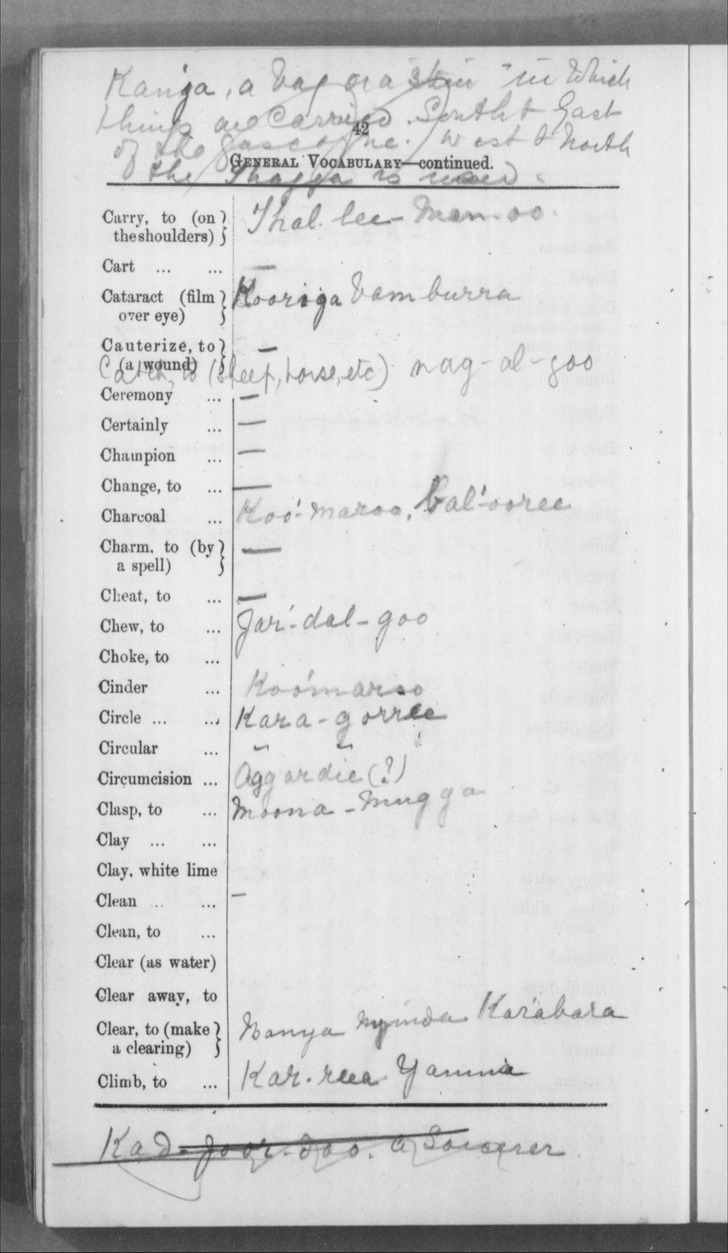 Kanja, a bag or a skin in which
things are carried. South & East
42
of the Gascoyne. West & North
GENERAL VOCABULARY—continued.
the Thagga is used.
Carry, to (on the shoulders) Thal-lee-man-oo.
Cart ... ... —
Cataract (film over eye) Kooroga bamburra
Cauterize, to (a wound) —
Catch, to (sheep, horse, etc) nag-al-goo
Ceremony ... —
Certainly ... —
Champion ... —
Change, to ... —
Charcoal ... Koo'-maroo, bal'ooree
Charm, to (by a spell) —
Cheat, to ... —
Chew, to ... Jar'-dal-goo
Choke, to ...
Cinder ... Koo'maroo
Circle ... ... Kara-gorree
Circular ... " "
Circumcision ... Aggardie (?)
Clasp, to ... Moona-mugga
Clay ... ...
Clay, white lime
Clean ... ... —
Clean, to ...
Clear (as water)
Clear away, to
Clear, to (make a clearing) Karabara
Climb, to ... Kar-rea Yamma
Kad-joor-doo. a Sorcerer